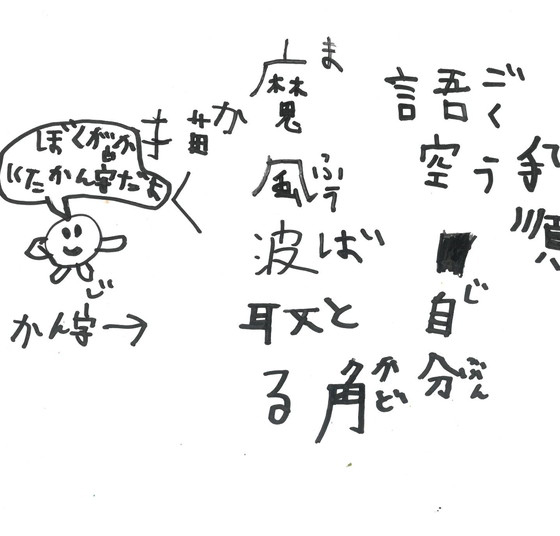 ぼくがか
いたかん字だよ
かん字→
じ
魔 ま
風 ふう
波 ば
取 と
る 角 かど
語 ご
く
空 う
自 じ
分 ぶん
順